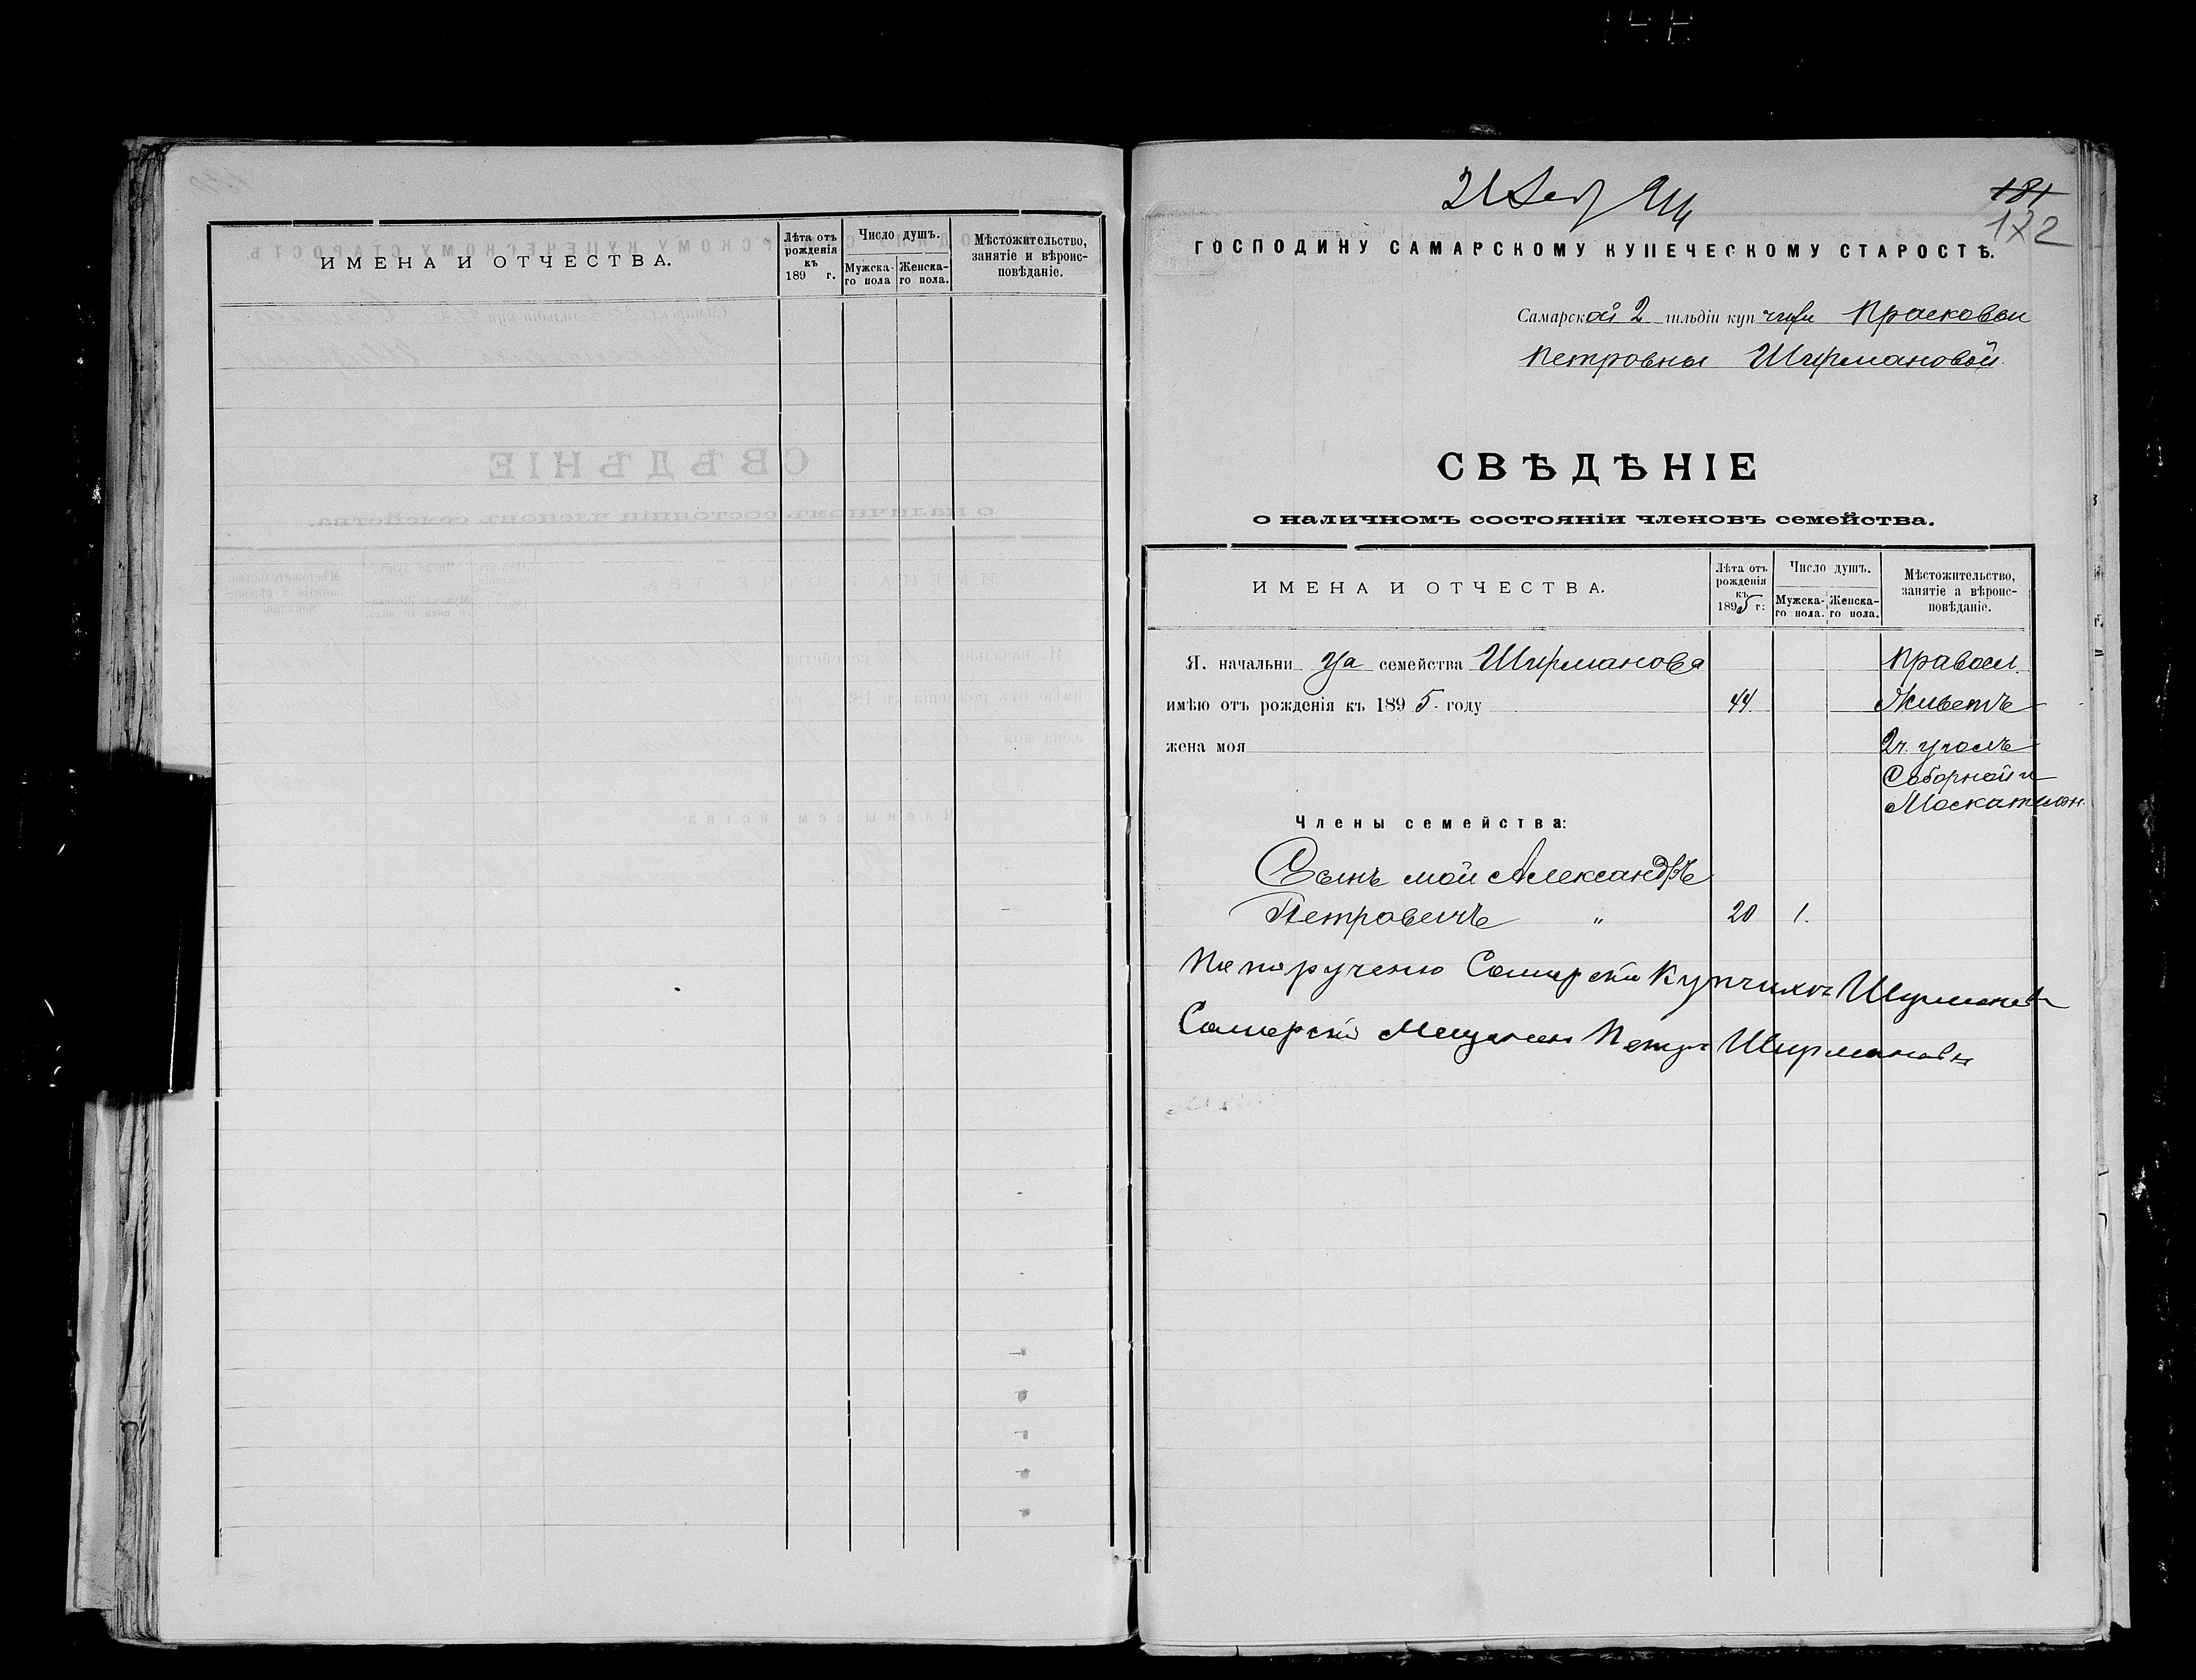 ИМЕНА И ОТЧЕСТВА.
Лѣта отъ рожденія къ 189 г.
Число душъ.
Мужска-го пола
Женска-го пола.
Мѣстожительство, занятіе и вѣроис-повѣданіе.
21 94
181
172
ГОСПОДИНУ САМАРСКОМУ КУПЕЧЕСКОМУ СТАРОСТѢ.
Самарской 2 гильдіи купчихи Прасковьи
Петровны Ширмановой.
СВѢДѢНІЕ
о наличномъ состояніи членовъ семейства.
ИМЕНА И ОТЧЕСТВА.
Лѣта отъ рожденія къ 1895 г:
Число душъ.
Мужска-го пола.
Женска-го пола.
Мѣстожительство, занятіе а вѣроис-повѣданіе.
Я. начальница семейства Ширманова Правосл.
имѣю отъ рожденія къ 1895. году 44 Живетъ
жена моя 2ч. уголъ
Соборной и
Москательн.
Члены семейства:
Сынъ мой Александръ
Петровичъ " 20 1.
По порученію Самарски Купчихи Ширманов
Самарскій Мещанин Петръ Ширмановъ